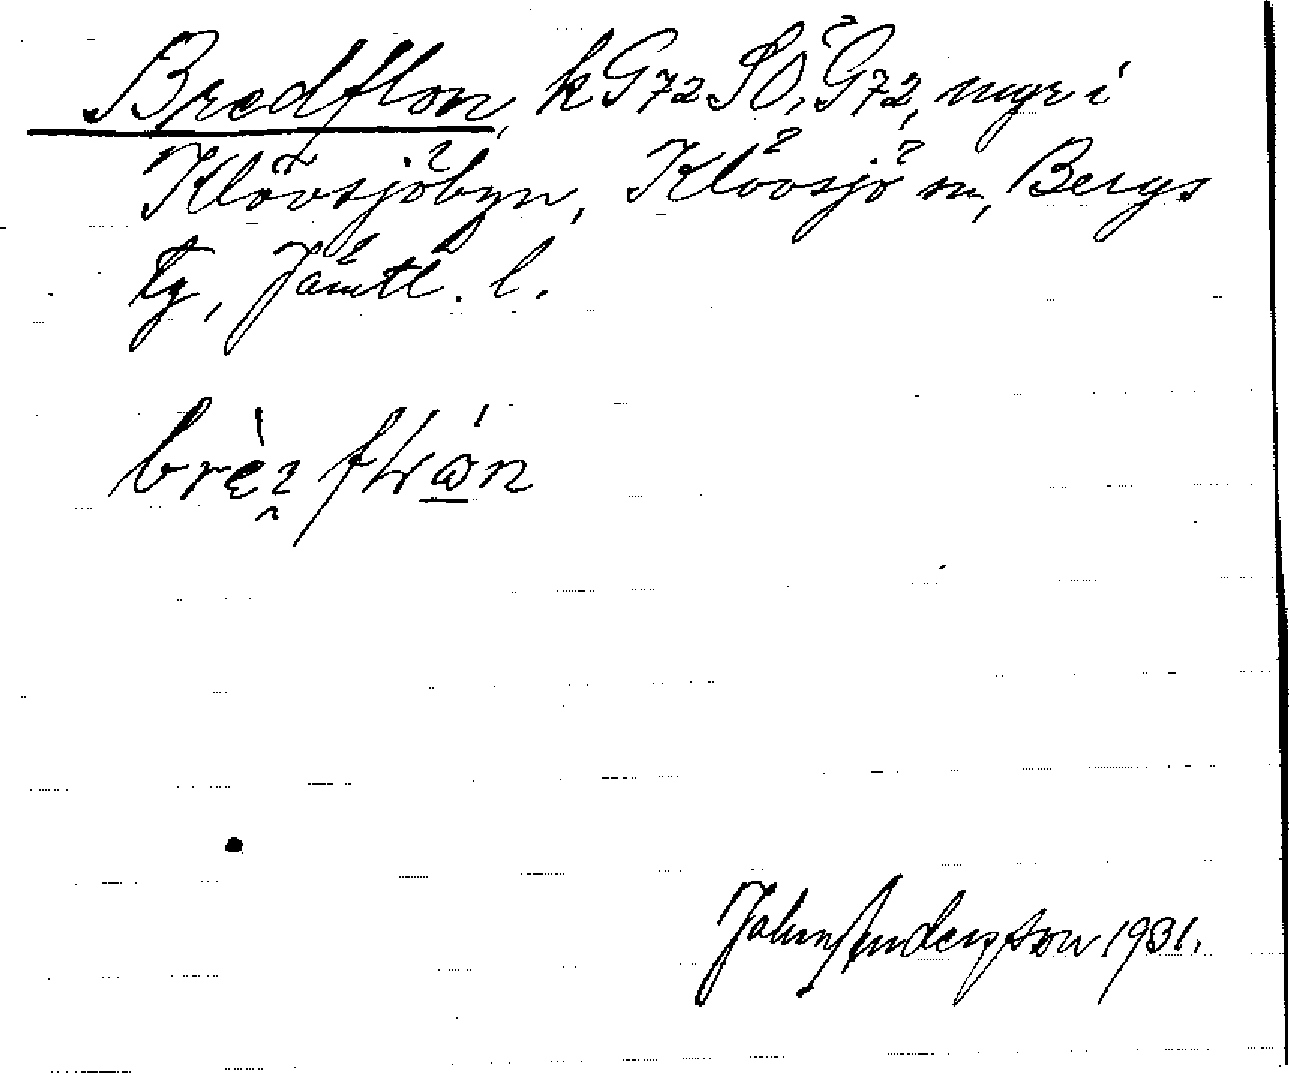 Bredflon, kG72SO, G72, myr i
Klövsjöbyn, Klövsjö sn, Bergs
tg, Jämtl. l.
John Andersson 1931.